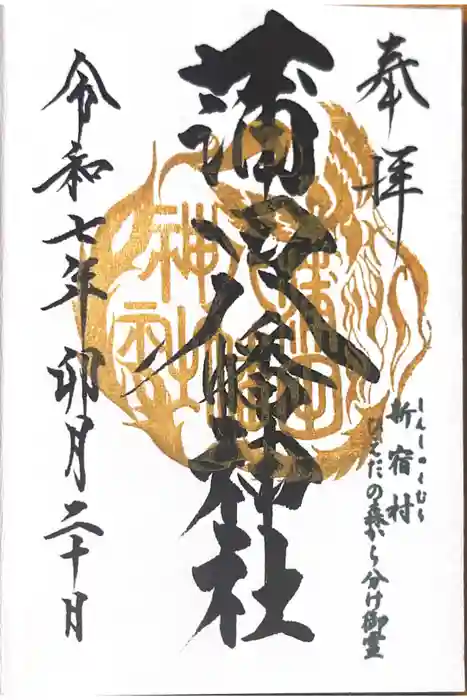 奉拝
新宿村
しんしゅくむら
ひえだの森から分け御霊
蒲田八幡神社
令和七年 卯月二十日